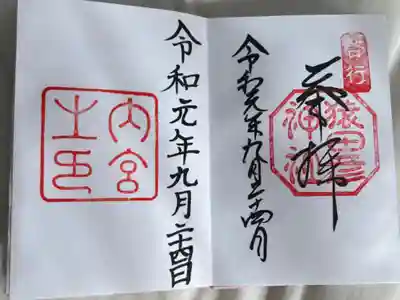 啓行
奉拝
猿田彦神社
令和元年九月二十四日
令和元年九月二十四日
内宮之印